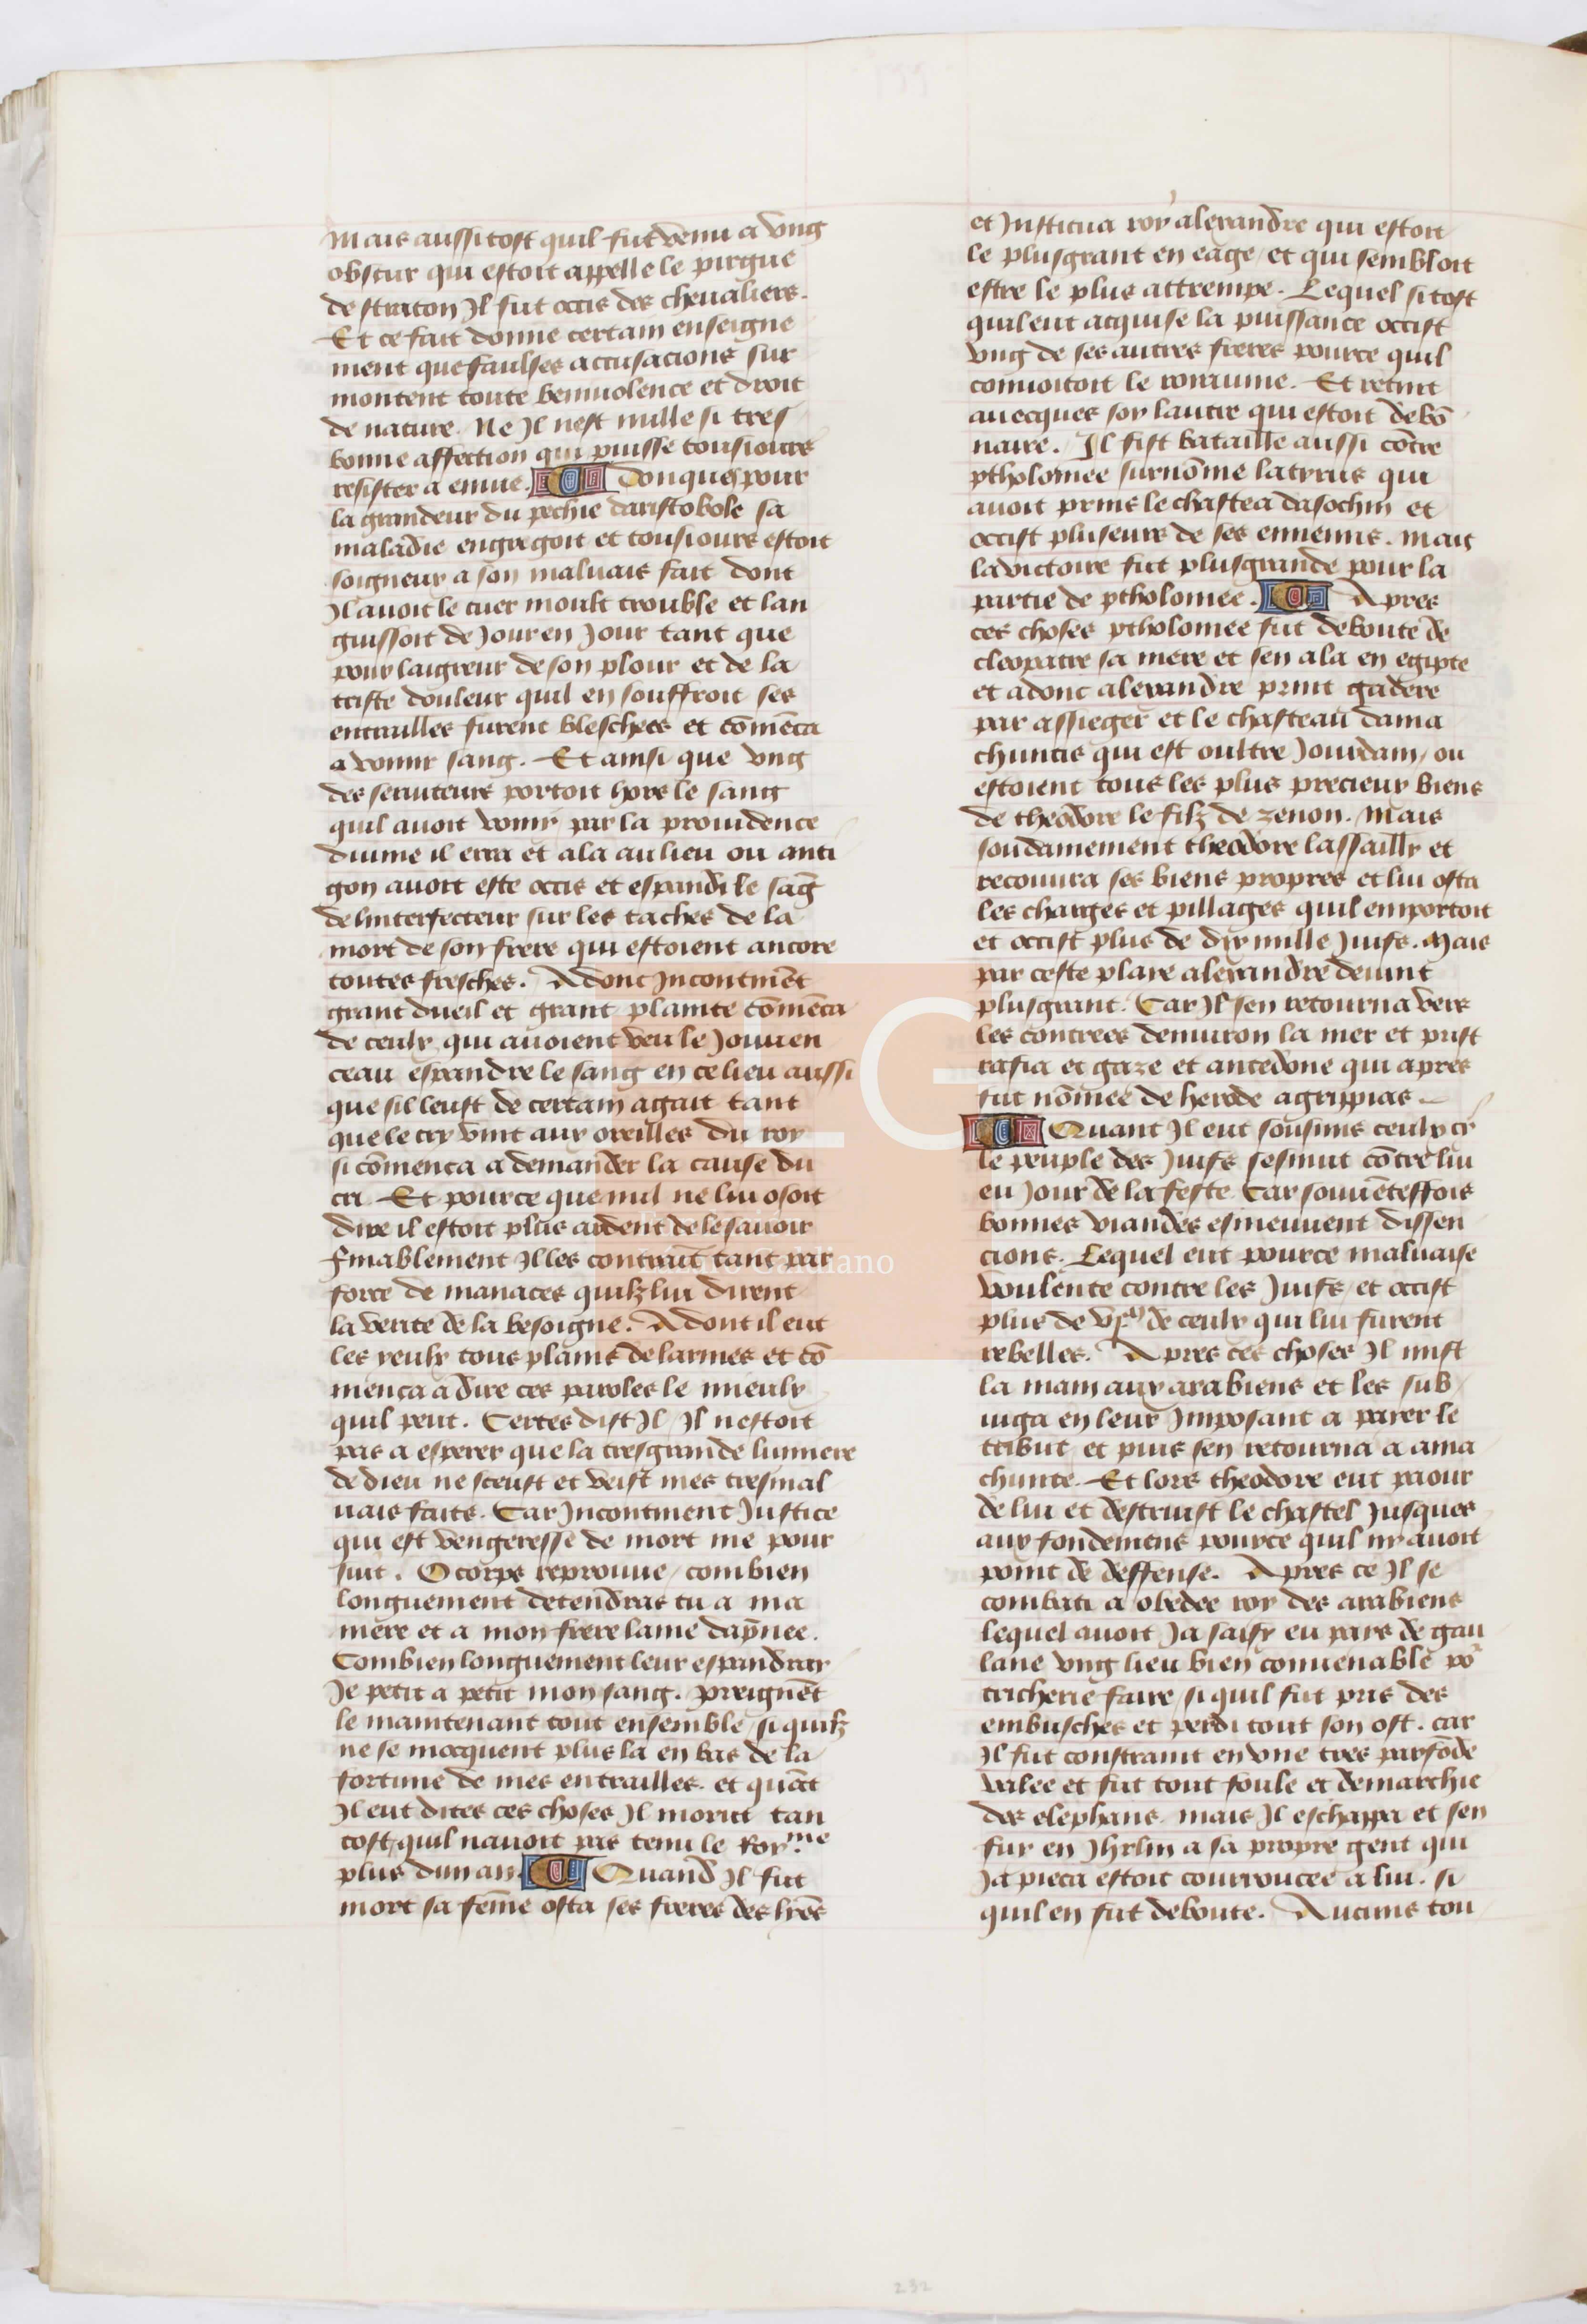 Mais aussitost quil fut venu a vng
obscur qui estoit appelle le pirgue
de straton Jl fut occis des cheualiers.
Et ce fait donne certain enseigne
ment que faulses accusacions sur
montent toute beniuolence et droit
de nature. Ne Jl nest nulle si tres
bonne affection qui puisse tousiours
resister a enuie. Donques pour
la grandeur du pechie daristobole sa
maladie engregoit et tousiours estoit
soigneux a son maluais fait dont
Jl auoit le cuer moult trouble et lan
guissoit de Jour en Jour tant que
pour laigreur de son plour et de la
triste douleur quil en souffroit ses
entrailles furent bleschees et cōmēca
a vomir sang. Et ainsi que vng
des seruiteurs portoit hors le sang
quil auoit vomy par la prouidence
diuine il erra et ala au lieu ou anti
gon auoit este occis et espandi le sāg
de linterfecteur sur les taches de la
mort de son frere qui estoient ancore
toutes fresches. Adonc Jncontinēt
grant dueil et grant plainte cōmēca
de ceulx qui auoient veu le Jouuen
ceau espandre le sang en ce lieu aussi
que sil leust de certain agait tant
que le cry vint aux oreilles du roy
si cōmenca a demander la cause du
cri. Et pource que nul ne lui osoit
dire il estoit plus ardent de le sauoir
Finablement Jl les contraīt tant par
force de manaces quilz lui dirent
la verite de la besoigne. Adont il eut
les yeulx tous plains de larmes et cō
menca a dire ces paroles le mieulx
quil peut. Certes dist Jl Jl nestoit
pas a esperer que la tresgrande lumiere
de dieu ne sceust et veist mes tresmal
uais faits. Car Jncontinent Justice
qui est vengeresse de mort me pour
suit. O corps reprouue combien
longuement detendras tu a ma
mere et a mon frere lame dāpnee.
Combien longuement leur espandray
Je petit a petit mon sang. Preignēt
le maintenant tout ensemble si quilz
ne se mocquent plus la en bas de la
fortune de mes entrailles. et quāt
Jl eut dites ces choses Jl morut tan
tost quil nauoit pas tenu le Roy.me
plus dun an. Quand Jl fut
mort sa fēme osta ses freres des lyēs
et Jnstitua roy alexandre qui estoit
le plusgrant en eage et qui sembloit
estre le plus attrempe. Lequel si tost
quil eut acquise la puissance occist
vng de ses autres freres pource quil
conuoitoit le roiaume. Et retint
auecques soy lautre qui estoit debō
naire. Jl fist bataille aussi cōtre
ptholomee surnōme latyrus qui
auoit prins le chastea dasochin et
occist pluseurs de ses ennemis. Mais
la victoire fut plusgrande pour la
partie de ptholomee. Apres
ces choses ptholomee fut deboute de
cleopatre sa mere et sen ala en egipte
et adonc alexandre print gadere
par assieger et le chasteau dama
chuntis qui est oultre Jourdain ou
estoient tous les plus precieux biens
de theodore le filz de zenon. Mais
soudainement theodore lassailly et
recouura ses biens propres et lui osta
les charges et pillages quil emportoit
et occist plus de dix mille Juifs. Mais
par ceste plaie alexandre deuint
plusgrant. Car Jl sen retourna vers
les contrees denuiron la mer et prist
rafia et gaze et antedone qui apres
fut nōmee de herode agrippias
Quant Jl eut soubmis ceulx cy
le peuple des Juifs sesmut cōtre lui
en Jour de la feste. Car souuēteffois
bonnes viandes esmeuuent dissen
cions. Lequel eut pource maluaise
voulente contre les Juifs et occist
plus de vjm de ceulx qui lui furent
rebelles. Apres ces choses Jl mist
la main aux arabiens et les sub
iuga en leur Jmposant a paier le
tribut et puis sen retourna a ama
chunte. Et lors theodore eut paour
de lui et destruist le chastel Jusques
aux fondemens pource quil ny auoit
point de deffense. Apres ce Jl se
combati a obedee roy des arabiens
lequel auoit Ja saisy eu pais de gau
lane vng lieu bien conuenable po᷑
tricherie faire si quil fut pris des
embusches et perdi tout son ost. car
Jl fut constraint en vne tres parfōde
valee et fut tout foule et demarchie
des elephans. mais Jl eschappa et sen
fuy en Jhrlm a sa propre gent qui
Ja pieca estoit courroucee a lui. si
quil en fut deboute. Aucuns tou
232